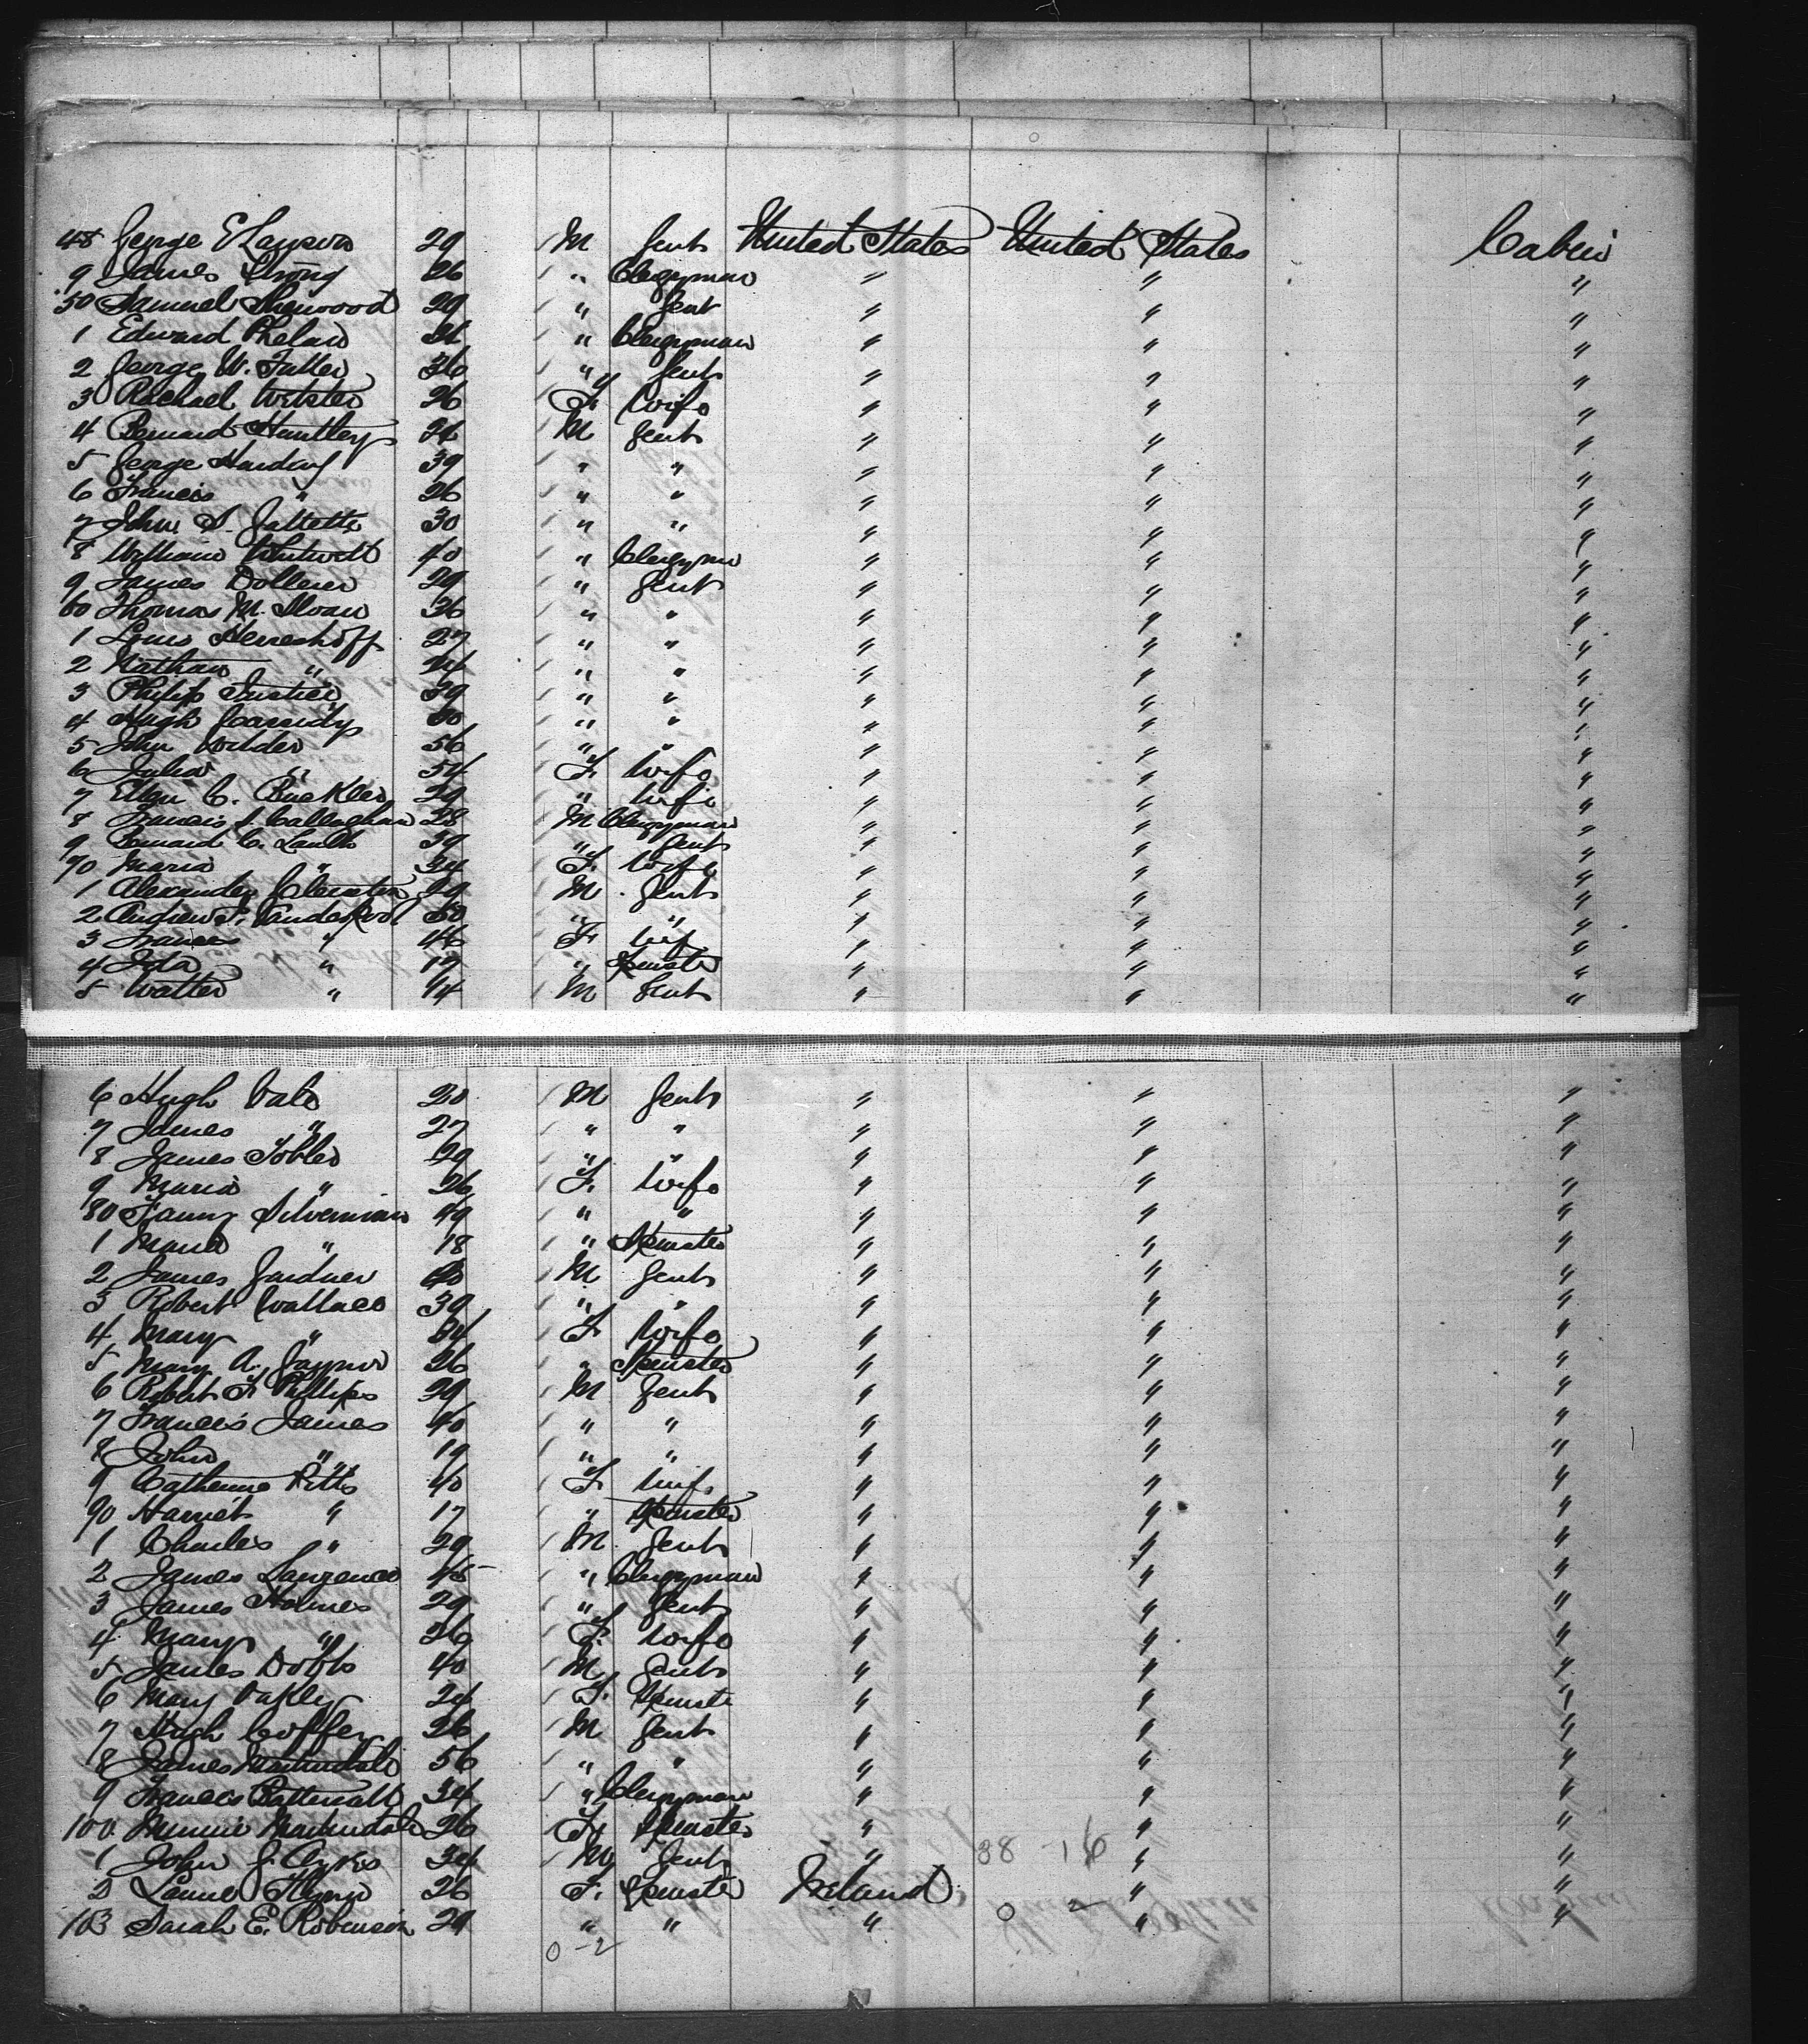 48 George E Lawson 29 M Gent United States United States Cabin
9 James Strong 26 " Clergyman " " "
50 Samuel Sherwood 29 " Gent " " "
1 Edward Phelan 36 " Clergyman " " "
2 George W. Fuller 36 " Gent " " "
3 Rachael Webster 26 F. Wife " " "
4 Bernard Huntley 24 M Gent " " "
5 George Harding 39 " " " " "
6 Francis " 26 " " " " "
7 John S. 30 " " " " "
8 William Whitwell 40 " Clergyman " " "
9 James 29 " Gent " " "
60 Thomas M. Sloan 36 " " " " "
1 Louis Herreshoff 27 " " " " "
2 Nathan " 24 " " " " "
3 Philip Justice 39 " " " " "
4 Hugh Cassidy " " " " "
5 John Wilder 56 " " " " "
6 Julia " 54 F. Wife " " "
7 Ellen C. Buckler 29 " Wife " " "
8 Francis J. Callaghan 28 M Clergyman " " "
9 Bernard C. 39 " Gent " " "
70 Maria " 34 F. Wife " " "
1 Alexander 29 M Gent " " "
2 Andrew J. Vanderpool 50 " " " " "
3 Frances " 46 F. Wife " " "
4 Ida " 17 " Spinster " " "
5 Walter " 14 M Gent " " "
6 Hugh 30 M Gent " " "
7 James " 27 " " " " "
8 James Tobler 29 " " " " "
9 Maria " 26 F. Wife " " "
80 Fanny Silverman 49 " " " " "
1 Maria " 18 " Spinster " " "
2 James Gardner 40 M Gent " " "
3 Robert Wallace 39 " " " " "
4 Mary " 34 F. Wife " " "
5 Mary A. Gaynor 26 " Spinster " " "
6 Robert F. Phillips 29 M Gent " " "
7 Francis James 40 " " " " "
8 John " 19 " " " " "
9 Catherine Pitts 40 F. Wife " " "
90 Harriet " 17 " Spinster " " "
1 Charles " 29 M Gent " " "
2 James 45 " Clergyman " " "
3 James Holmes 29 " Gent " " "
4 Mary " 26 F. Wife " " "
5 James Dobbs 40 M Gent " " "
6 Mary Oakley 24 F. Spinster " " "
7 Hugh Coffey 26 M Gent " " "
8 James Martindale 56 " " " " "
9 Francis 34 " Clergyman " " "
100 Minnie Martindale 26 F. Spinster " " "
1 John J. 34 M Gent " 38 - 16 " "
2 Flynn 26 F. Spinster Ireland " "
103 Sarah E. Robinson 29 " " " 0 2 " "
0-2